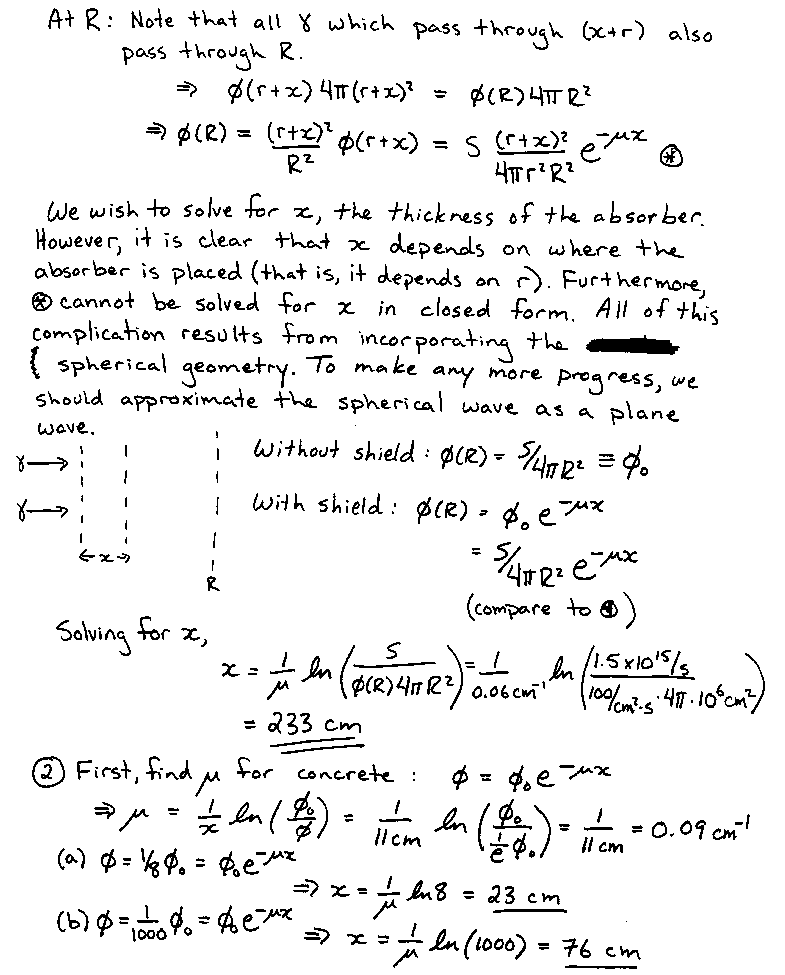 At R: Note that all γ which pass through (x+r) also
pass through R.
⇒ φ(r+x) 4π(r+x)² = φ(R) 4π R²
⇒ φ(R) = (r+x)²/R² φ(r+x) = S (r+x)²/4πr²R² e^-μx ⊛
We wish to solve for x, the thickness of the absorber.
However, it is clear that x depends on where the
absorber is placed (that is, it depends on r). Furthermore,
⊛ cannot be solved for x in closed form. All of this
complication results from incorporating the
spherical geometry. To make any more progress, we
should approximate the spherical wave as a plane
wave.
γ→
γ→
←x→
R
Without shield : φ(R) = S/4πR² ≡ φ₀
With shield : φ(R) = φ₀ e^-μx
= S/4πR² e^-μx
(compare to ⊛)
Solving for x,
x = 1/μ ln (S/φ(R)4πR²) = 1/0.06cm⁻¹ ln (1.5x10¹⁵/s / 100/cm²·s · 4π · 10⁶cm²)
= 233 cm
② First, find μ for concrete : φ = φ₀ e^-μx
⇒ μ = 1/x ln (φ₀/φ) = 1/11cm ln (φ₀/(1/e φ₀)) = 1/11cm = 0.09 cm⁻¹
(a) φ = 1/8 φ₀ = φ₀e^-μx
⇒ x = 1/μ ln8 = 23 cm
(b) φ = 1/1000 φ₀ = φ₀e^-μx
⇒ x = 1/μ ln(1000) = 76 cm